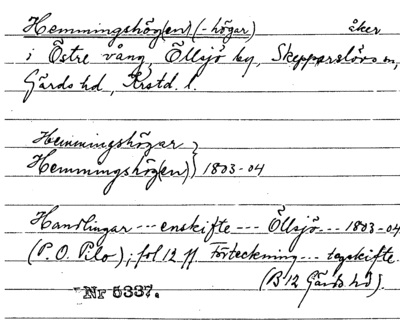 Hemmingshög(en) (-högar) åker
i Östre vång, Öllsjö by, Skepparslövs sn,
Gärds hd, Krstd. l.
Hemmingshögar }
Hemmingshög(en) } 1803-04
Handlingar --- enskifte --- Öllsjö --- 1803-04
(P. O. Pilo); fol 12 ff Förteckning --- tegskifte.
(B 12 Gärds hd).
Nr 5337.